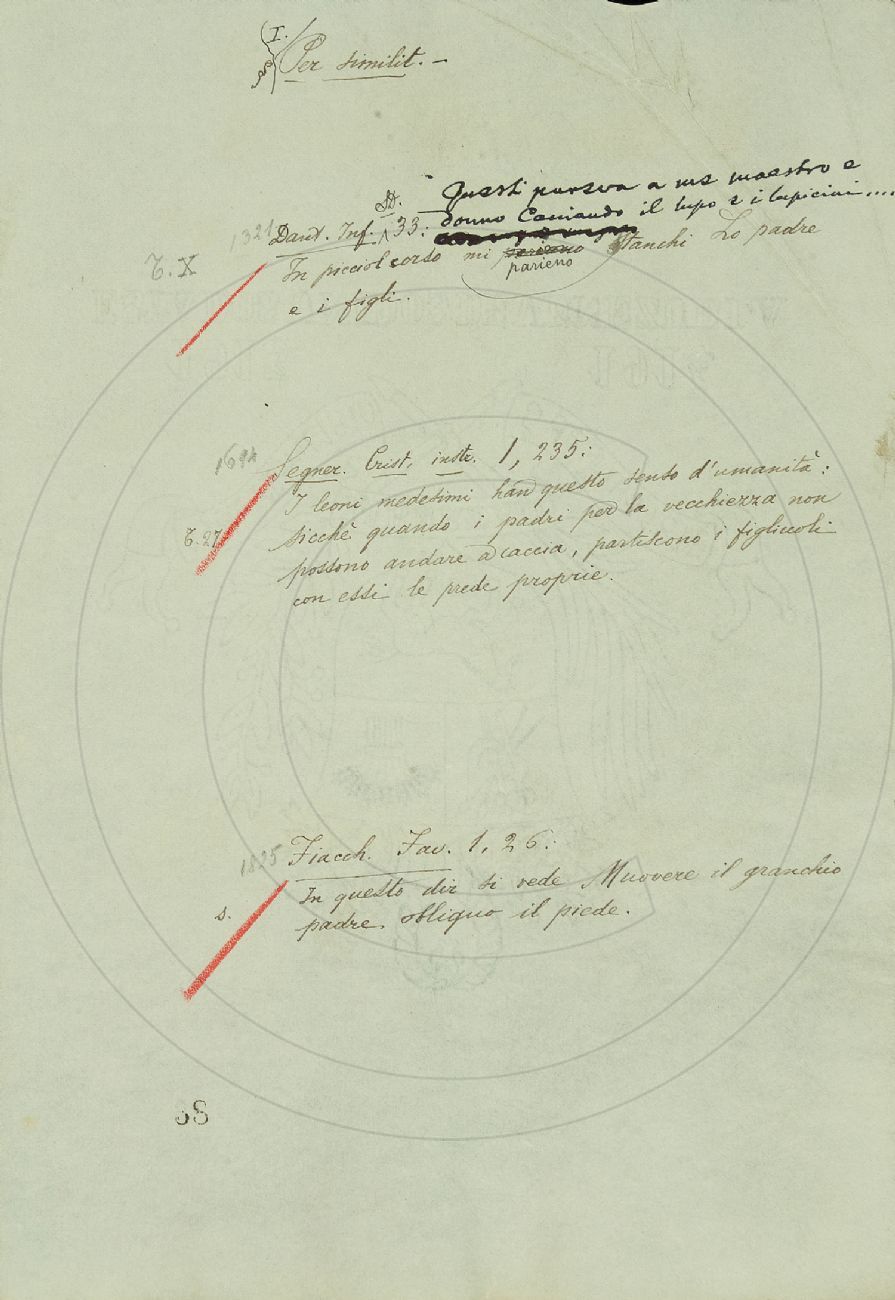 I.
Per similit. –
Questi pareva a me maestro e
donno Cacciando il lupo e i lupicini....
1321 Dant. Inf. 33:
T. X
In picciol corso mi pariono parieno Stanchi Lo padre
e i figli.
1694 Segner. Crist. instr. 1, 235:
I leoni medesimi han questo senso d'umanità:
T. 27 sicchè quando i padri per la vecchiezza non
possono andare a caccia, partiscono i figliuoli
con essi le prede proprie.
1825 Fiacch. Fav. 1, 26:
In questo dir si vede Muovere il granchio
s. padre, obliquo il piede.